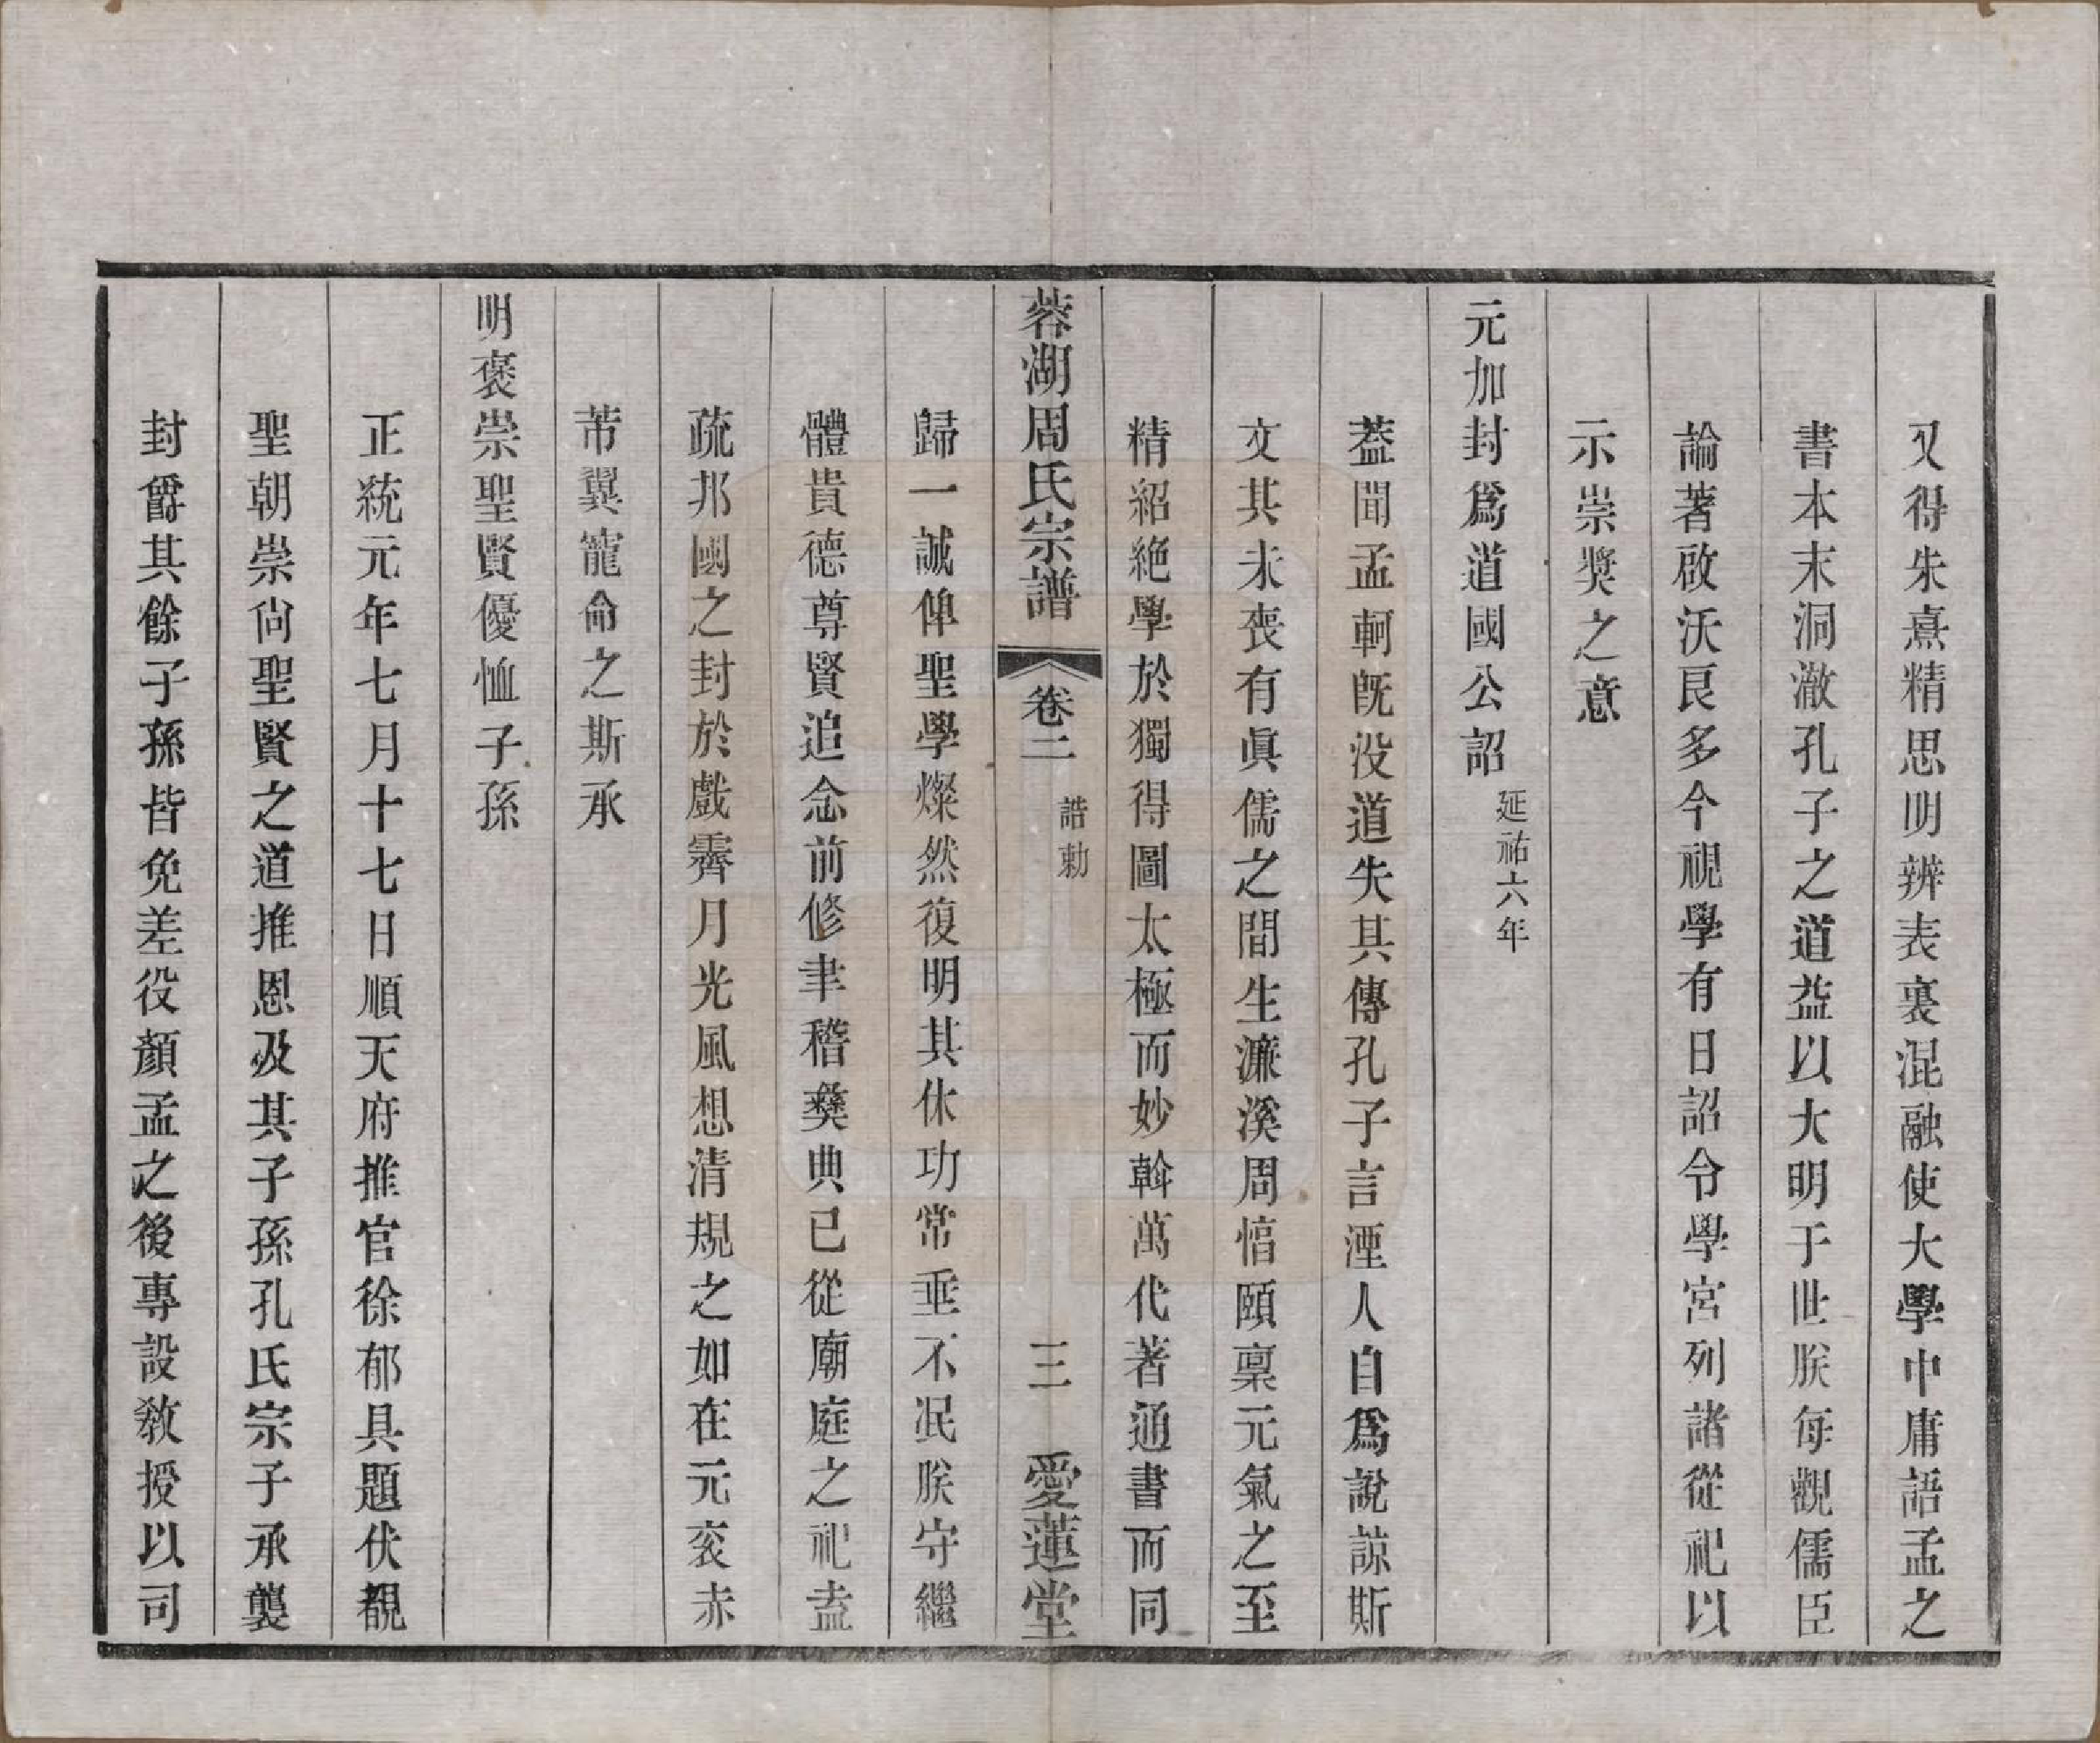 又得朱熹精思明辨表裏混融使大學中庸語孟之
書本末洞澈孔子之道益以大明于世朕每觀儒臣
論著啟沃良多今視學有日詔令學宮列諸從祀以
示崇奬之意
元加封爲道國公詔延祐六年
葢聞孟軻旣没道失其傳孔子言湮人自爲說諒斯
文其未喪有眞儒之間生濂溪周惇頤稟元氣之至
精紹絶學於獨得圖太極而妙斡萬代著通書而同
蓉湖周氏宗譜 卷二 誥勅 三 愛蓮堂
歸一誠俾聖學燦然復明其休功常垂不泯朕守繼
體貴德尊賢追念前修聿稽彝典已從廟庭之祀盍
疏邦國之封於戲霽月光風想清規之如在元衮赤
芾翼寵命之斯承
明褒崇聖賢優恤子孫
正統元年七月十七日順天府推官徐郁具題伏覩
聖朝崇尙聖賢之道推恩及其子孫孔氏宗子承襲
封爵其餘子孫皆免差役顏孟之後專設敎授以司